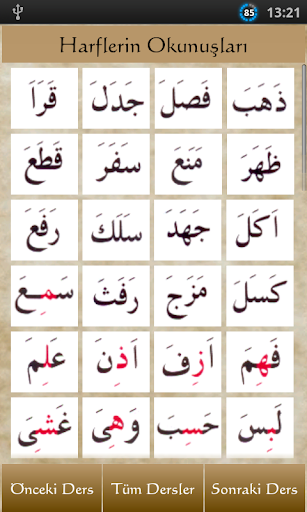 85 13:21
Harflerin Okunuşları
ذَهَبَ فَصَلَ جَدَلَ قَرَاَ
ظَهَرَ مَنَعَ سَفَرَ قَطَعَ
اَكَلَ جَهَدَ سَلَكَ رَفَعَ
كَسَلَ مَزَجَ رَفَثَ سَمِعَ
فَهِمَ اَزِفَ اَذِنَ عَلِمَ
لَبِسَ حَسِبَ وَهِىَ غَشِىَ
Önceki Ders Tüm Dersler Sonraki Ders